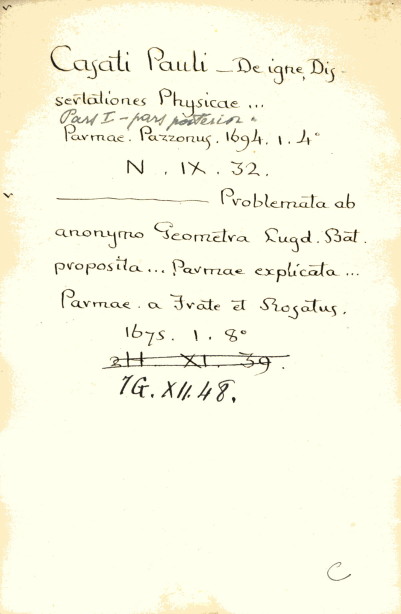 Casati Pauli _ De igne, Dis-
sertationes Physicae ...
Pars I - pars posterior.
Parmae. Pazzonus. 1694. 1. 4°
N. IX. 32.
Problemata ab
anonymo Geometra Lugd. Bat.
proposita ... Parmae explicata ...
Parmae. a Frate et Rosatus.
1675. 1. 8°
2H XI. 39.
7G. XII. 48.
C